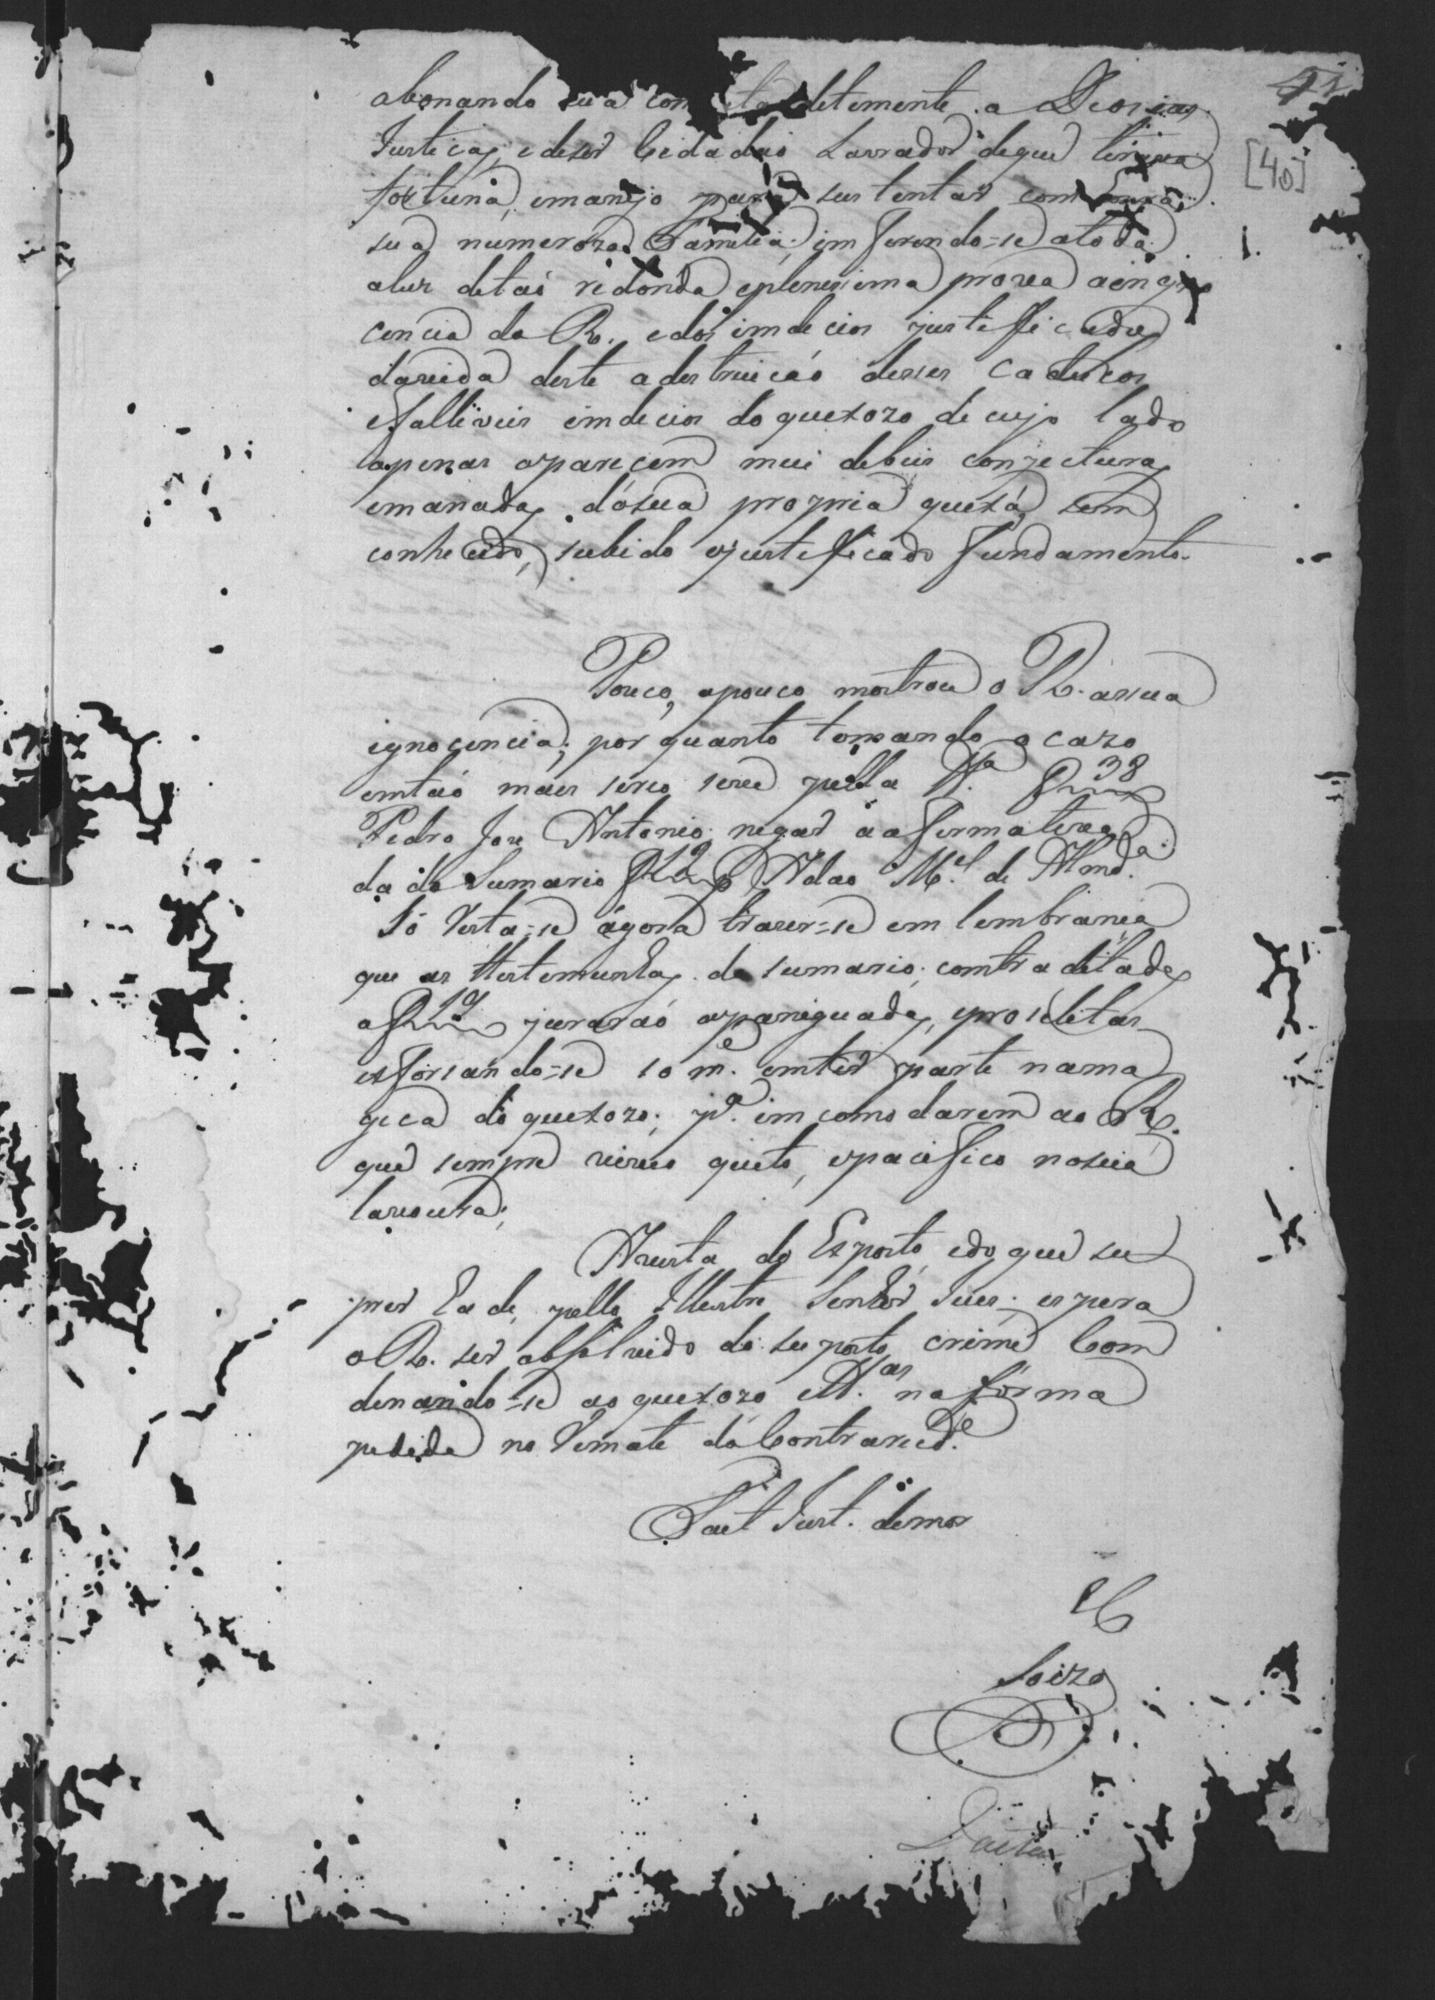 41
[40]
abonando sua con detemente a Deos, as
Justiça, e deser Cidadáo Lavrador deque tira a
fortuna, emanejo para sustentar com honra
sua numeroza Familia; imferindo=se atoda
aluz detaó redonda eplenissima prova aigno
cencia do R. edos imdecios justeficados
dávida deste adestruicáo desses Caducos
efalliveis imdecios do quexozo de cujo lado
apenas aparecem mui debeis conjecturas
emanadas dásua propria quexá, sem
conhecido, subido ejusteficado fundamento.
Pouco, apouco mostrou o R. asua
ignocencia; por quanto tomando o cazo
emtáo mais serio seve pella Ta. f 38
Pedro Jose Antonio negar aafirmativa
da do Sumario f 12 Adao Mel. de Almda.
Só resta=se ágora trazer=se em lembrança
que as Testemunhas do sumario comtraditadas
a f 19 juraráo apaniguadas, eproselitas
esforsando=se som.e emter parte nama
gica do quexozo; pa. imcomodarem ao R.
que sempre viveo quieto, epacifico nasua
lavoura;
Avista do Exposto, edo que su
prir ha de pello Illustre Senhor Juis; espera
o R. ser absolvido do suposto crime Com
denando=se ao quexozo e A.as na fórma
pedida no Remate da Contraried.e
Fiat Just. demor
E C
Soizo
Data